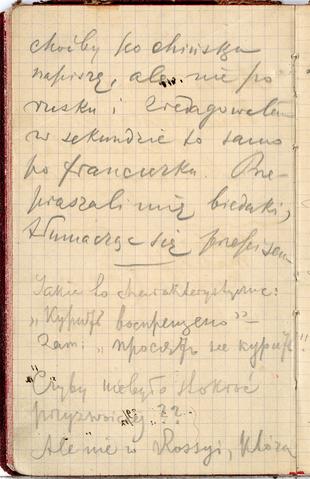 choćby po chińsku
napiszę, ale nie po
rusku i zredagowałem
w sekundzie to samo
po francusku. Prze-
praszali mię biedaki,
tłumacząc się przepisem
Jakie to charakterystyczne:
„Курить воспрещено” –
Zam. „просять не курить”!
Czyby niebyło stokroć
przyzwoiciej??
Ale nie w Rossyi, która